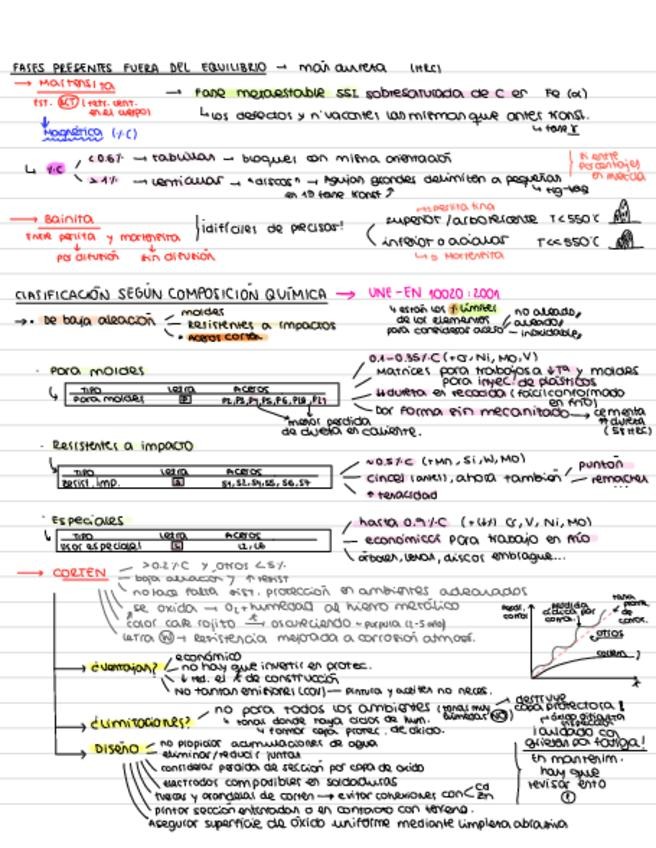 FASES PRESENTES FUERA DEL EQUILIBRIO → más dureza (HRC)
→ Martensita → Fase metaestable SSI sobresaturada de C en Fe (α)
Est. BCT (tetr. cent. en el cuerpo)
↳ los defectos y nº vacantes las mismas que antes transf.
↳ fase γ
Magnética (%C)
↳ %C
< 0.6% → tabulillas → bloques con misma orientación
> 1% → lenticular → "discos" → Agujas grandes delimitan a pequeñas
en 1º fase transf
↳ zig-zag
→ Bainita
Entre perlita y martensita
por difusión sin difusión
¡difíciles de precisar!
→ perlita fina
superior / arborescente T<550°C
inferior o acicular T<<550°C
↳ martensita
CLASIFICACIÓN SEGÚN COMPOSICIÓN QUÍMICA → UNE-EN 10020:2001
↳ están los límites de los elementos para considerar acero
no aleado,
aleado,
inoxidable,
→ · De baja aleación
moldes
Resistentes a impactos
Aceros corten
· Para moldes
TIPO Letra Aceros
Para moldes P P2, P3, P4, P5, P6, P20, P21
menor perdida de dureza en caliente.
0.1-0.35% C (+Cr, Ni, Mo, V)
Matrices para trabajos a ↓Tª y moldes para inyec. de plásticos
Dar forma sin mecanizado → cementa
↑↑ dureza
(58 HRC)
· Resistentes a impacto
TIPO Letra Aceros
Resist. Imp. S S1, S2, S4, S5, S6, S7
≈0.5% C (+Mn, Si, W, Mo)
cincel (antes), ahora también
punzón
remaches
↑ tenacidad
· Especiales
TIPO Letra Aceros
Usos especiales L L2, L6
hasta 0.9% C Cr, V, Ni, Mo)
económicos para trabajo en frío
árboles, levas, discos embrague...
→ CORTEN
>0.2% C y otros <5%
baja aleación y ↑ resist
no hace falta sist. protección en ambientes adecuados
se oxida → O₂ + humedad al hierro metálico
color café rojizo → oscureciendo → púrpura
letra W → resistencia mejorada a corrosión atmosf.
otros
corten
¿Ventajas?
económico
no hay que invertir en protec.
↓ red. el t de construcción
No tantas emisiones (COV) — pintura y aceites no neces.
¿Limitaciones?
no para todos los ambientes (zonas muy húmedas NO)
→ destruye capa protectora!
↳ zonas donde haya ciclos de hum.
↳ formar capa protec. de óxido.
¡cuidado con grietas por fatiga!
En mantenim. hay que revisar esto
Diseño
no propiciar acumulaciones de agua
eliminar/reducir juntas
considerar perdida de sección por capa de óxido
electrodos compatibles en soldaduras
tuercas y arandelas de corten → evitar conexiones con Cd Zn
pintar sección enterradas o en contacto con terreno.
Asegurar superficie de óxido uniforme mediante limpieza abrasiva